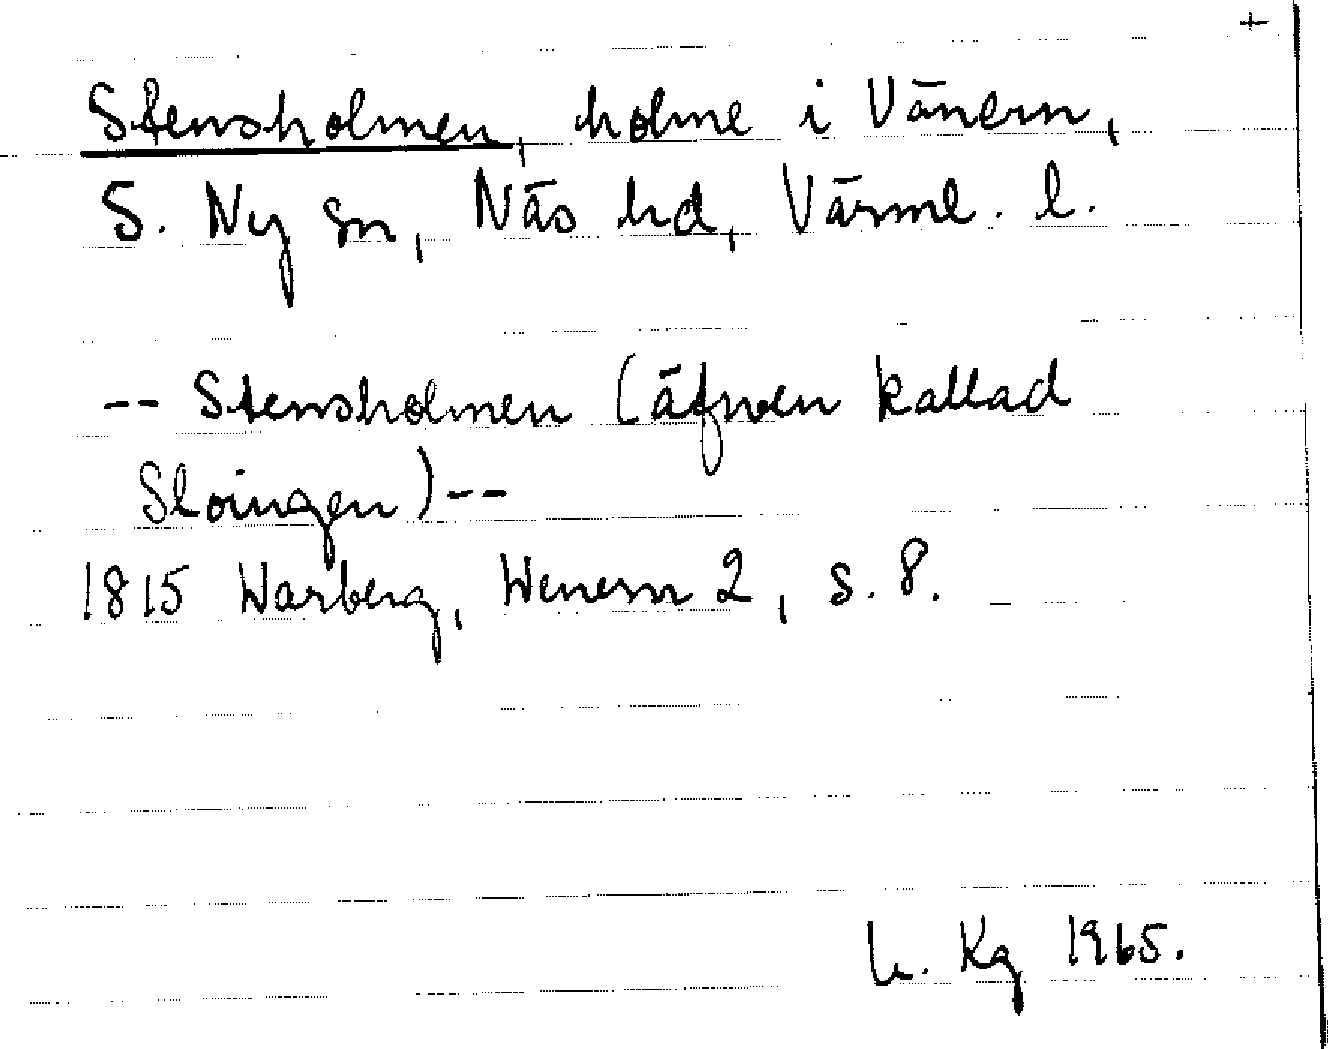 +
Stensholmen, holme i Vänern,
S. Ny sn, Näs hd, Värml. l.
-- Stensholmen (äfven kallad
Sloingen) --
1815 Warberg, Wenern 2, s. 8.
L. Kg 1965.